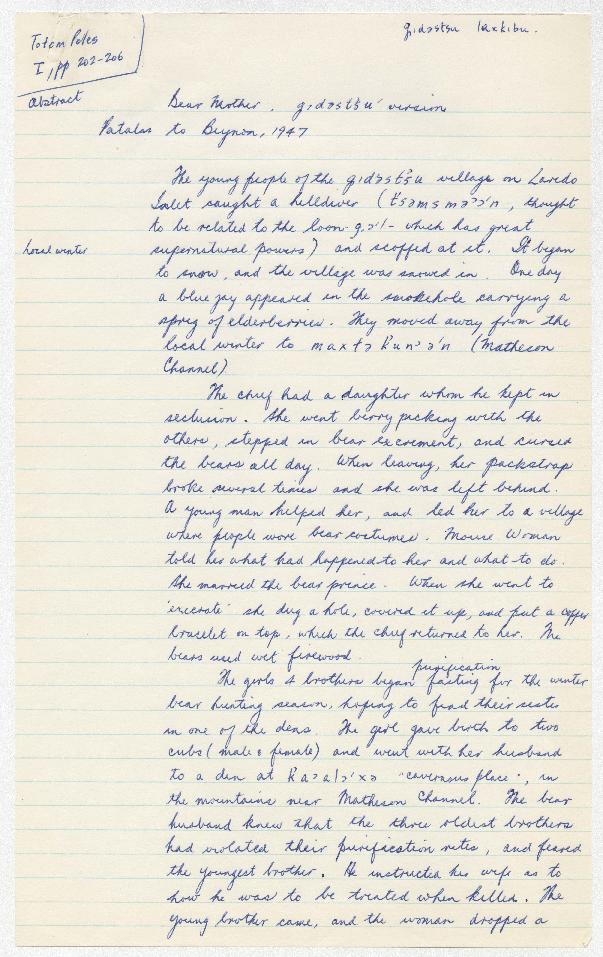 gıdəstsu laxkibu.
Totem Poles
I, pp 202-206
Abstract
Bear Mother. gıdəstsu' version
Patalas to Beynon, 1947
The young people of the gıdəstsu village on Laredo
Inlet caught a helldiver (thought
to be related to the loon - which has great
local winter
supernatural powers) and scoffed at it. It began
to snow, and the village was snowed in. One day
a blue jay appeared in the smokehole carrying a
sprig of elderberries. They moved away from the
local winter to (Matheson
Channel)
The chief had a daughter whom he kept in
seclusion. She went berrypicking with the
others, stepped in bear excrement, and cursed
the bears all day. When leaving, her packstrap
broke several times and she was left behind.
A young man helped her, and led her to a village
where people wore bear costumes. Mouse Woman
told her what had happened to her and what to do.
She married the bear prince. When she went to
'excrete' she dug a hole, covered it up, and put a copper
bracelet on top, which the chief returned to her. The
bears used wet firewood.
purification
The girls 4 brothers began fasting for the winter
bear hunting season, hoping to find their sister
in one of the dens. The girl gave birth to two
cubs (male & female) and went with her husband
to a den at "cavernous place", in
the mountains near Matheson Channel. The bear
husband knew that the three oldest brothers
had violated their purification rites, and feared
the youngest brother. He instructed his wife as to
how he was to be treated when killed. The
young brother came, and the woman dropped a